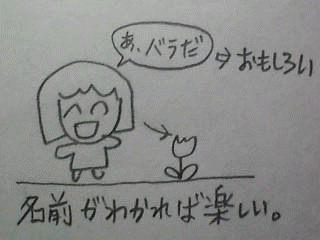 あ、バラだ
⇒おもしろい
名前がわかれば楽しい。